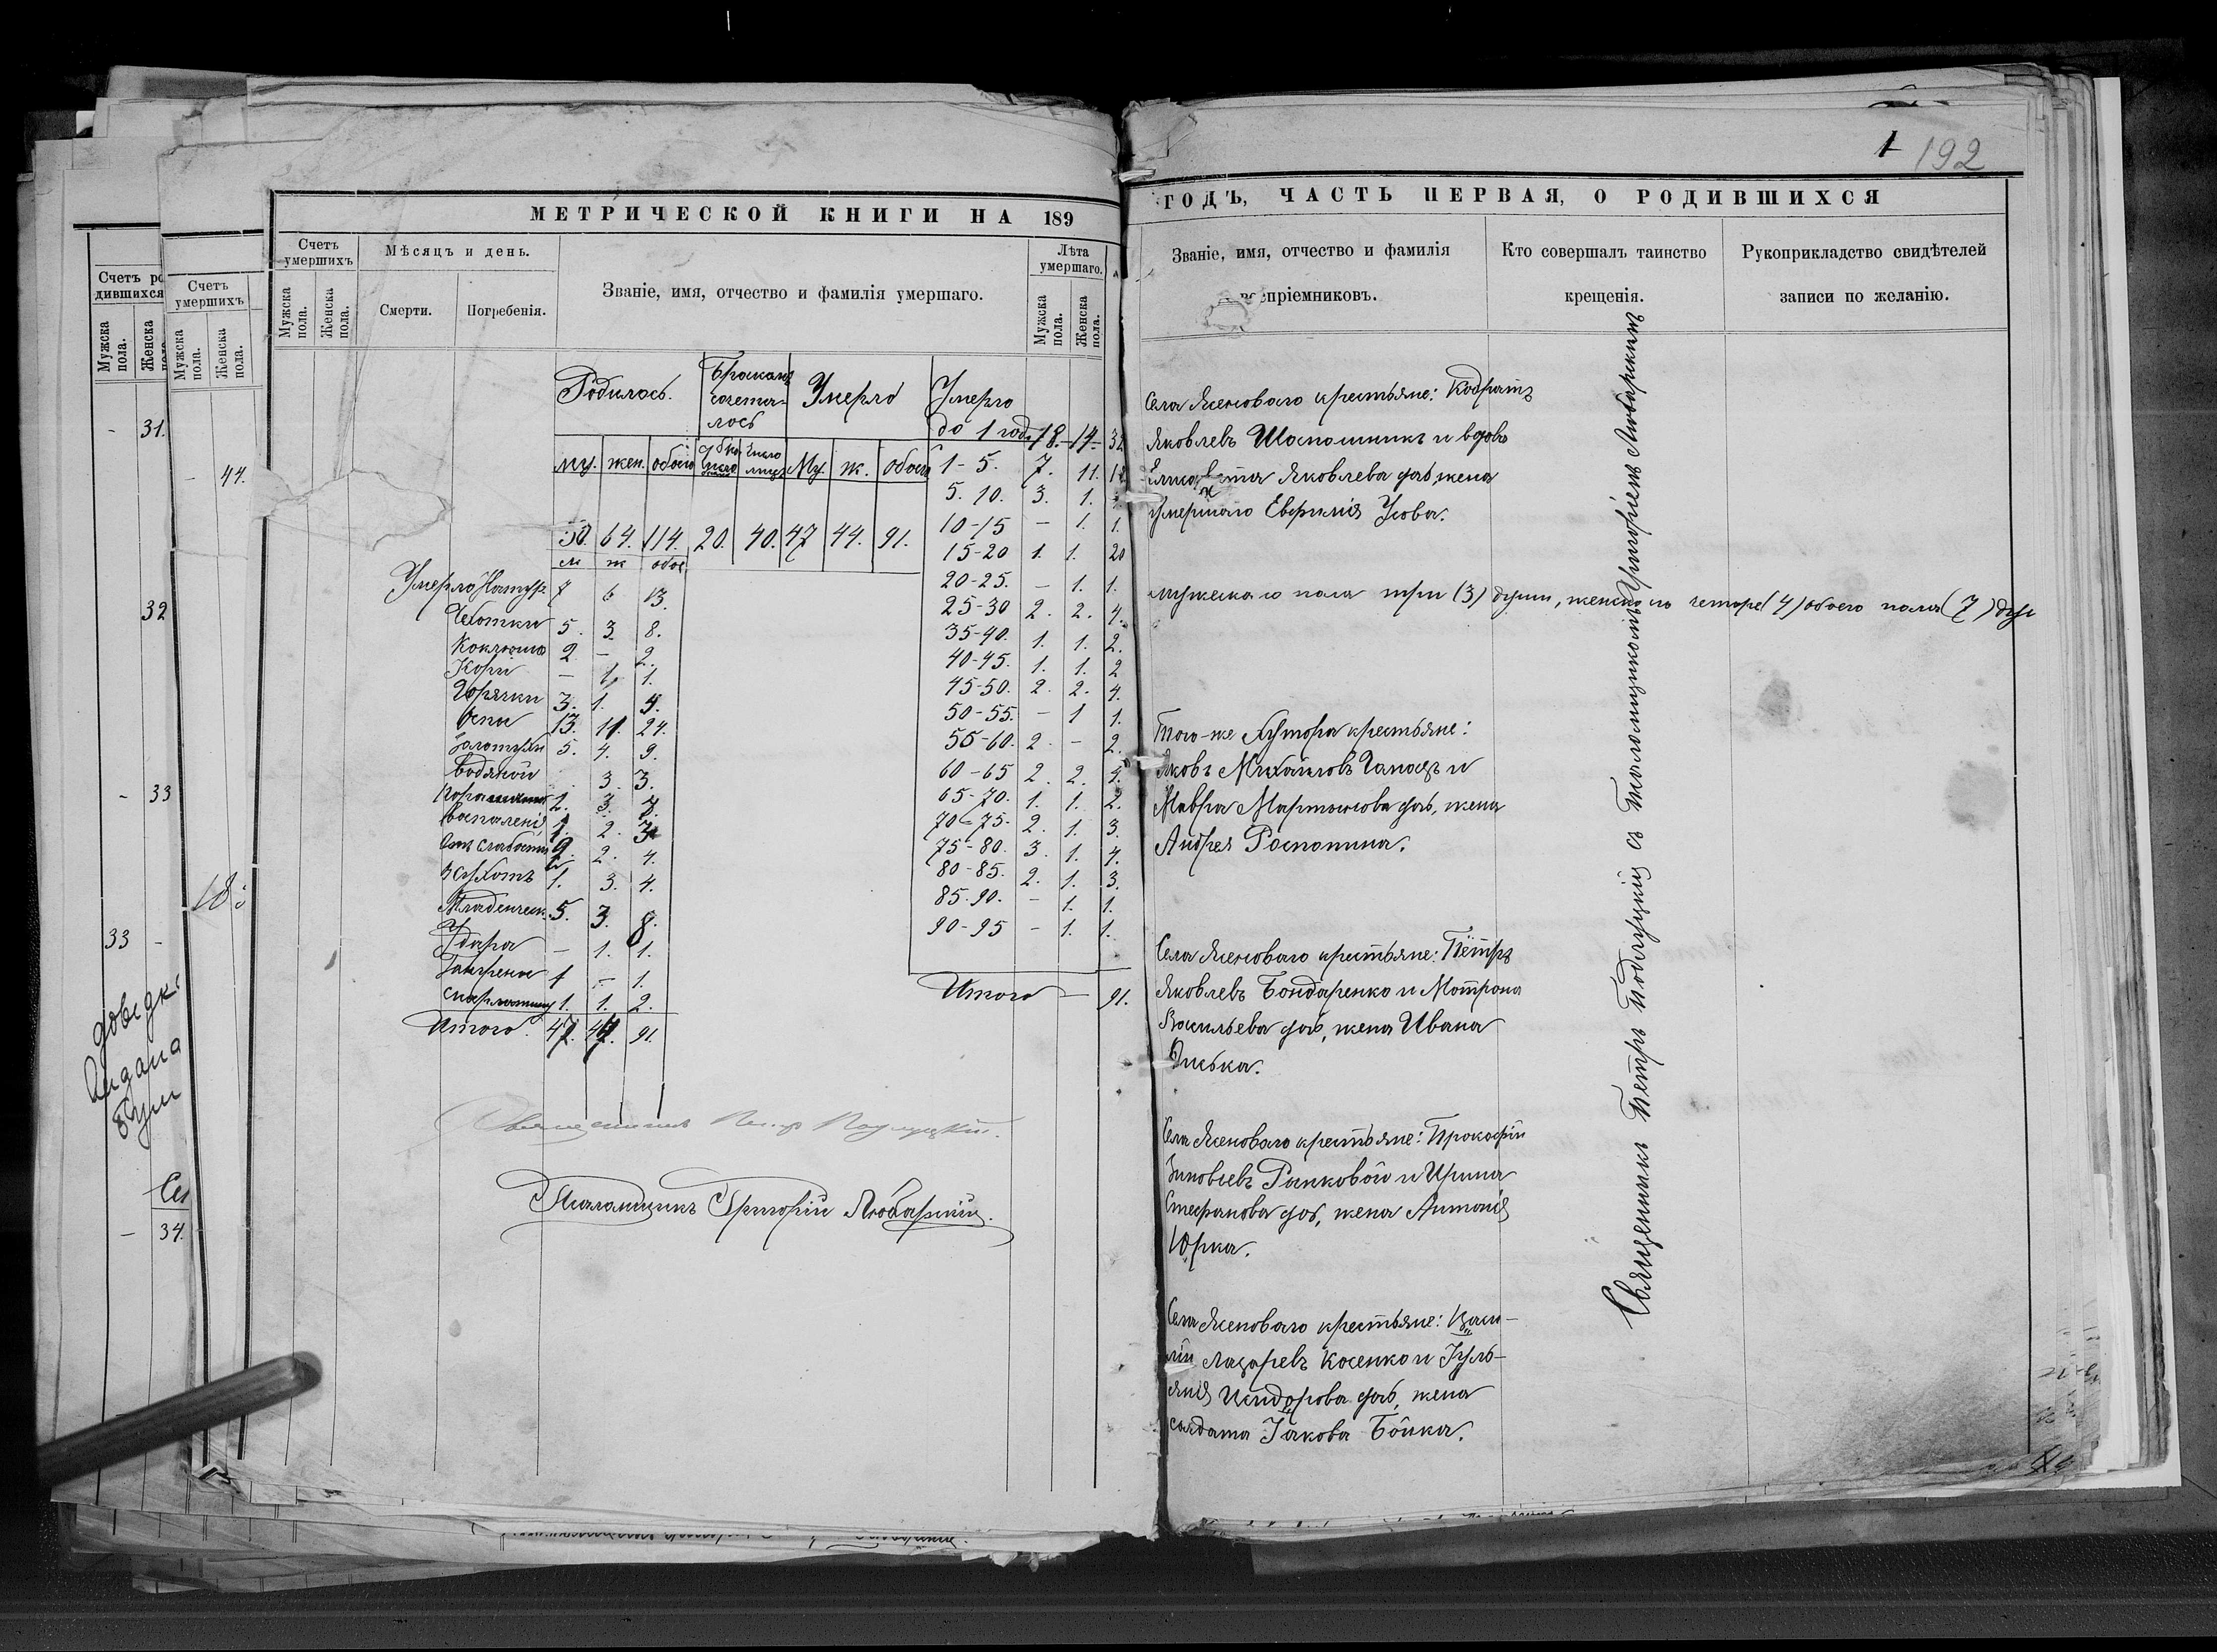 1 192
МЕТРИЧЕСКОЙ КНИГИ НА 189
Счетъ умершихъ
Мѣсяцъ и день.
Званіе, имя, отчество и фамилія умершаго.
Лѣта умершаго.
Мужска пола.
Женска пола.
Смерти.
Погребенія.
Мужска пола.
Женска пола.
Родилось.
Бракомъ сочета-
лось
Умерло
Умерло
до 1 года 18. - 14 - 32
му. жен. обоего число лицъ Му. ж. обоего
50. 64. 114. 20. 40. 47 44. 91.
1 - 5. 7. 11. 18
5. 10. 3. 1.
10 - 15 - 1. 1.
15 - 20 1. 1. 20
20 - 25. - 1. 1.
25 - 30 2. 2. 4.
35 - 40. 1. 1. 2.
40 - 45. 1. 1. 2
45 - 50. 2. 2. 4.
50 - 55. - 1 1.
55 - 60. 2 - 2.
60 - 65 2. 2. 4.
65 - 70. 1. 1. 2.
70 - 75. 2. 1. 3.
75 - 80. 3. 1. 4.
80 - 85. 2. 1. 3.
85. 90. - 1. 1.
90 - 95 - 1. 1.
Итого - 91.
м ж обоег
Умерло Натур. 7 6 13.
Чахотки 5. 3. 8.
Коклюша 2 - 2.
Кори - 1. 1.
Горячки 3. 1. 4.
Оспи 13. 11. 24.
5. 4. 9.
Водяной 3. 3.
3.
2. 3
Отъ слабости 2. 2. 4.
1. 3. 4.
Младенческ. 5. 3. 8.
Удара - 1. 1.
Гангрена 1 - 1.
Скарлатины 1. 1. 2.
Итого. 47. 44. 91.
Священникъ Петр Подлуцкій.
Псаломщикъ Григорій Любарскій.
ГОДЪ, ЧАСТЬ ПЕРВАЯ, О РОДИВШИХСЯ
Званіе, имя, отчество и фамилія
воспріемниковъ.
Кто совершалъ таинство
крещенія.
Рукоприкладство свидѣтелей
записи по желанію.
Села Ясеноваго крестьяне: Кодратъ
Яковлевъ Шапошникъ и вдова
Яковлева дочь, жена
умершаго Усова.
мужескаго пола три (3) души, женскаго четыре (4) обоего пола (7) душ
Того-же Хутора крестьяне:
Яковъ Михайловъ и
Мавра Мартынова дочь, жена
Андрея Роспопина.
Села Ясеноваго крестьяне: Пётръ
Яковлевъ Бондаренко и Мотрона
Васильева дочь, жена Ивана
Диська.
Села Ясеноваго крестьяне: Прокофій
Зиновьевъ и Ирина
Стефанова дочь, жена Антонія
Юрка.
Села Ясеноваго крестьяне: Васи-
лій Лазаревъ Косенко и Іуль-
янія Исидорова дочь, жена
солдата Іакова Бойка.
Священникъ Петръ Подлуцкій съ Псаломщикомъ Григоріемъ Любарскимъ
Счетъ ро
дившихся
Мужска пола.
Женска
Счетъ умершихъ
Мужска пола.
Женска пола.
- 31.
- 44.
32
- 33
33 -
- 34.